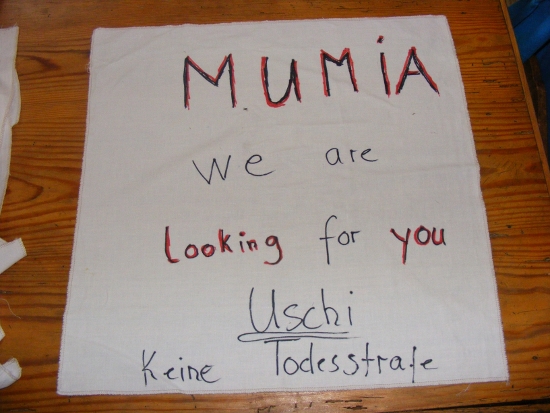 MUMiA
We are
Looking for you
Uschi
Keine Todesstrafe